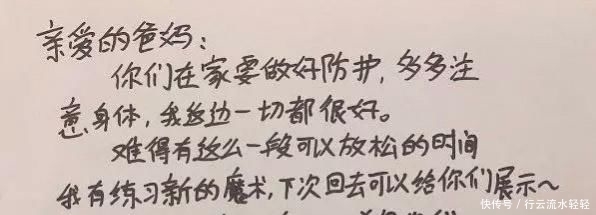 亲爱的爸妈:
你们在家要做好防护,多多注
意身体,我这边一切都很好。
难得有这么一段可以放松的时间
我有练习新的魔术,下次回去可以给你们展示~
快传号/行云流水轻轻